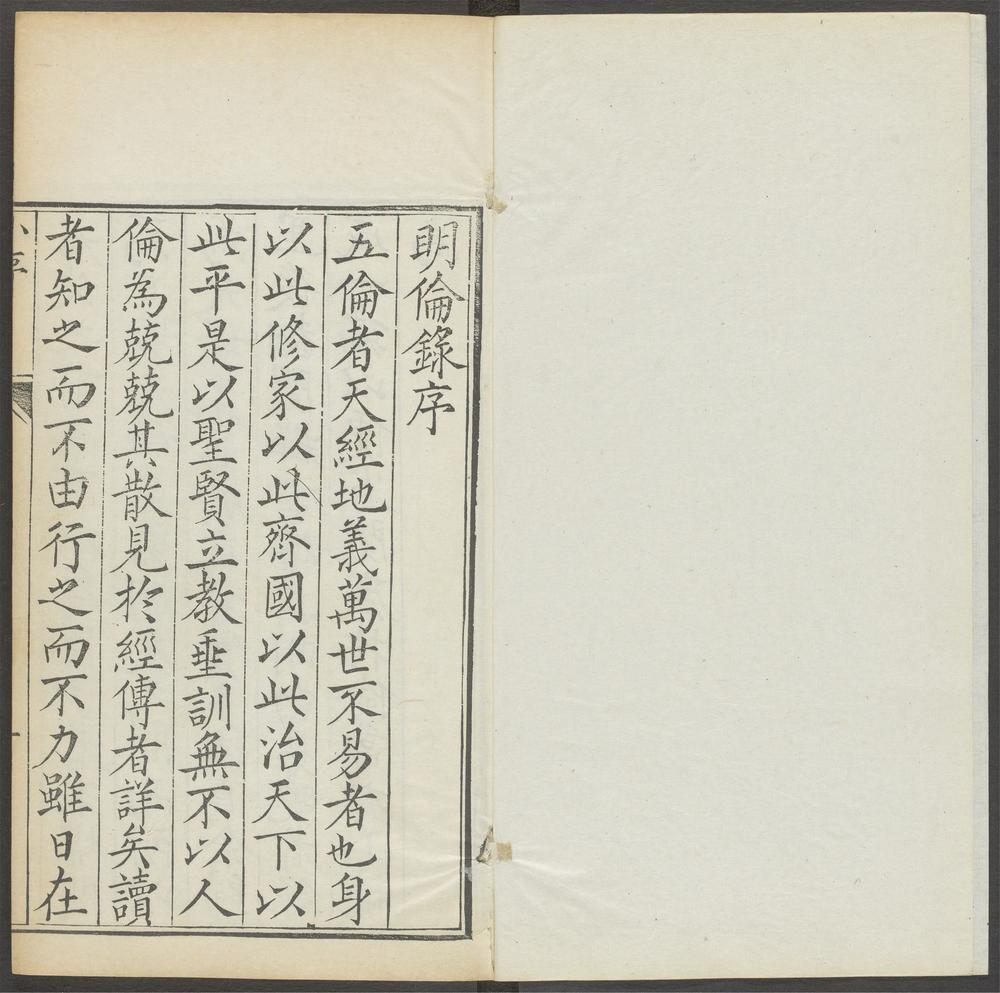 明倫錄序
五倫者天經地義萬世不易者也身
以此修家以此齊國以此治天下以
此平是以聖賢立教垂訓無不以人
倫為兢兢其散見於經傳者詳矣讀
者知之而不由行之而不力雖日在